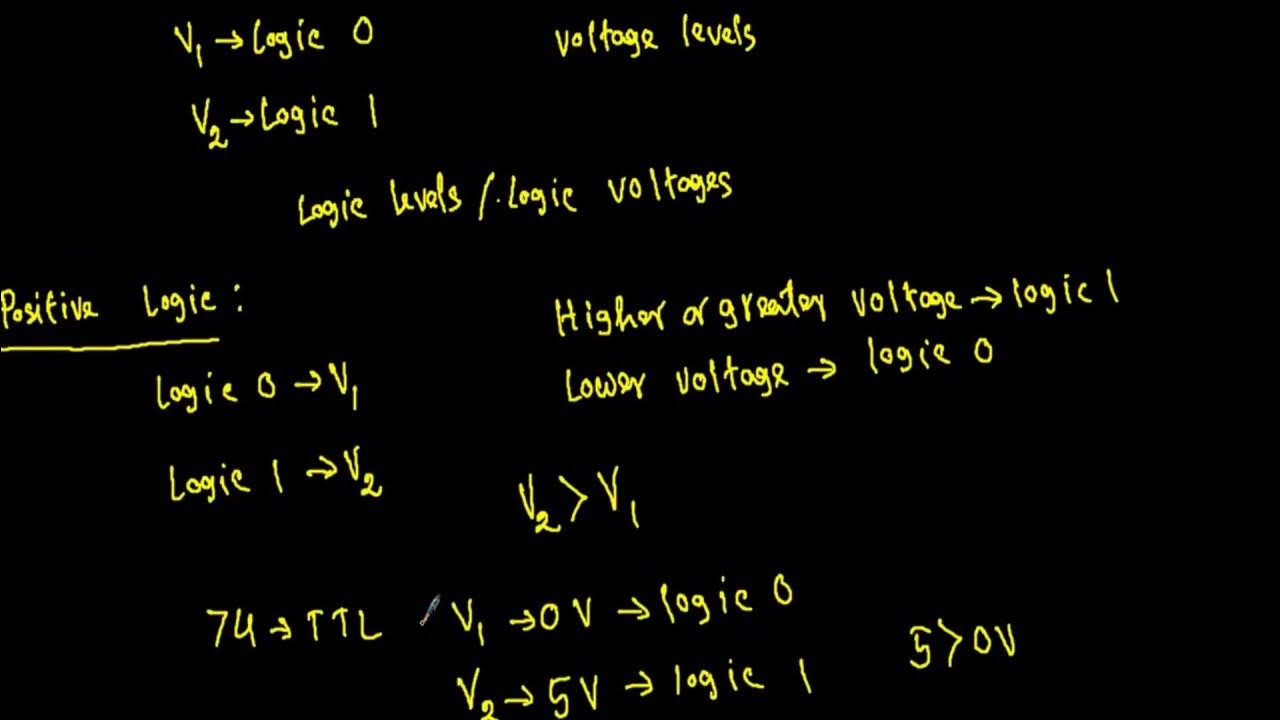 V1 → Logic 0
voltage levels
V2 → Logic 1
Logic levels / Logic voltages
Positive Logic :
Higher or greater voltage → logic 1
Lower voltage → logic 0
Logic 0 → V1
Logic 1 → V2
V2 > V1
74 → TTL V1 → 0V → logic 0
5 > 0V
V2 → 5V → logic 1